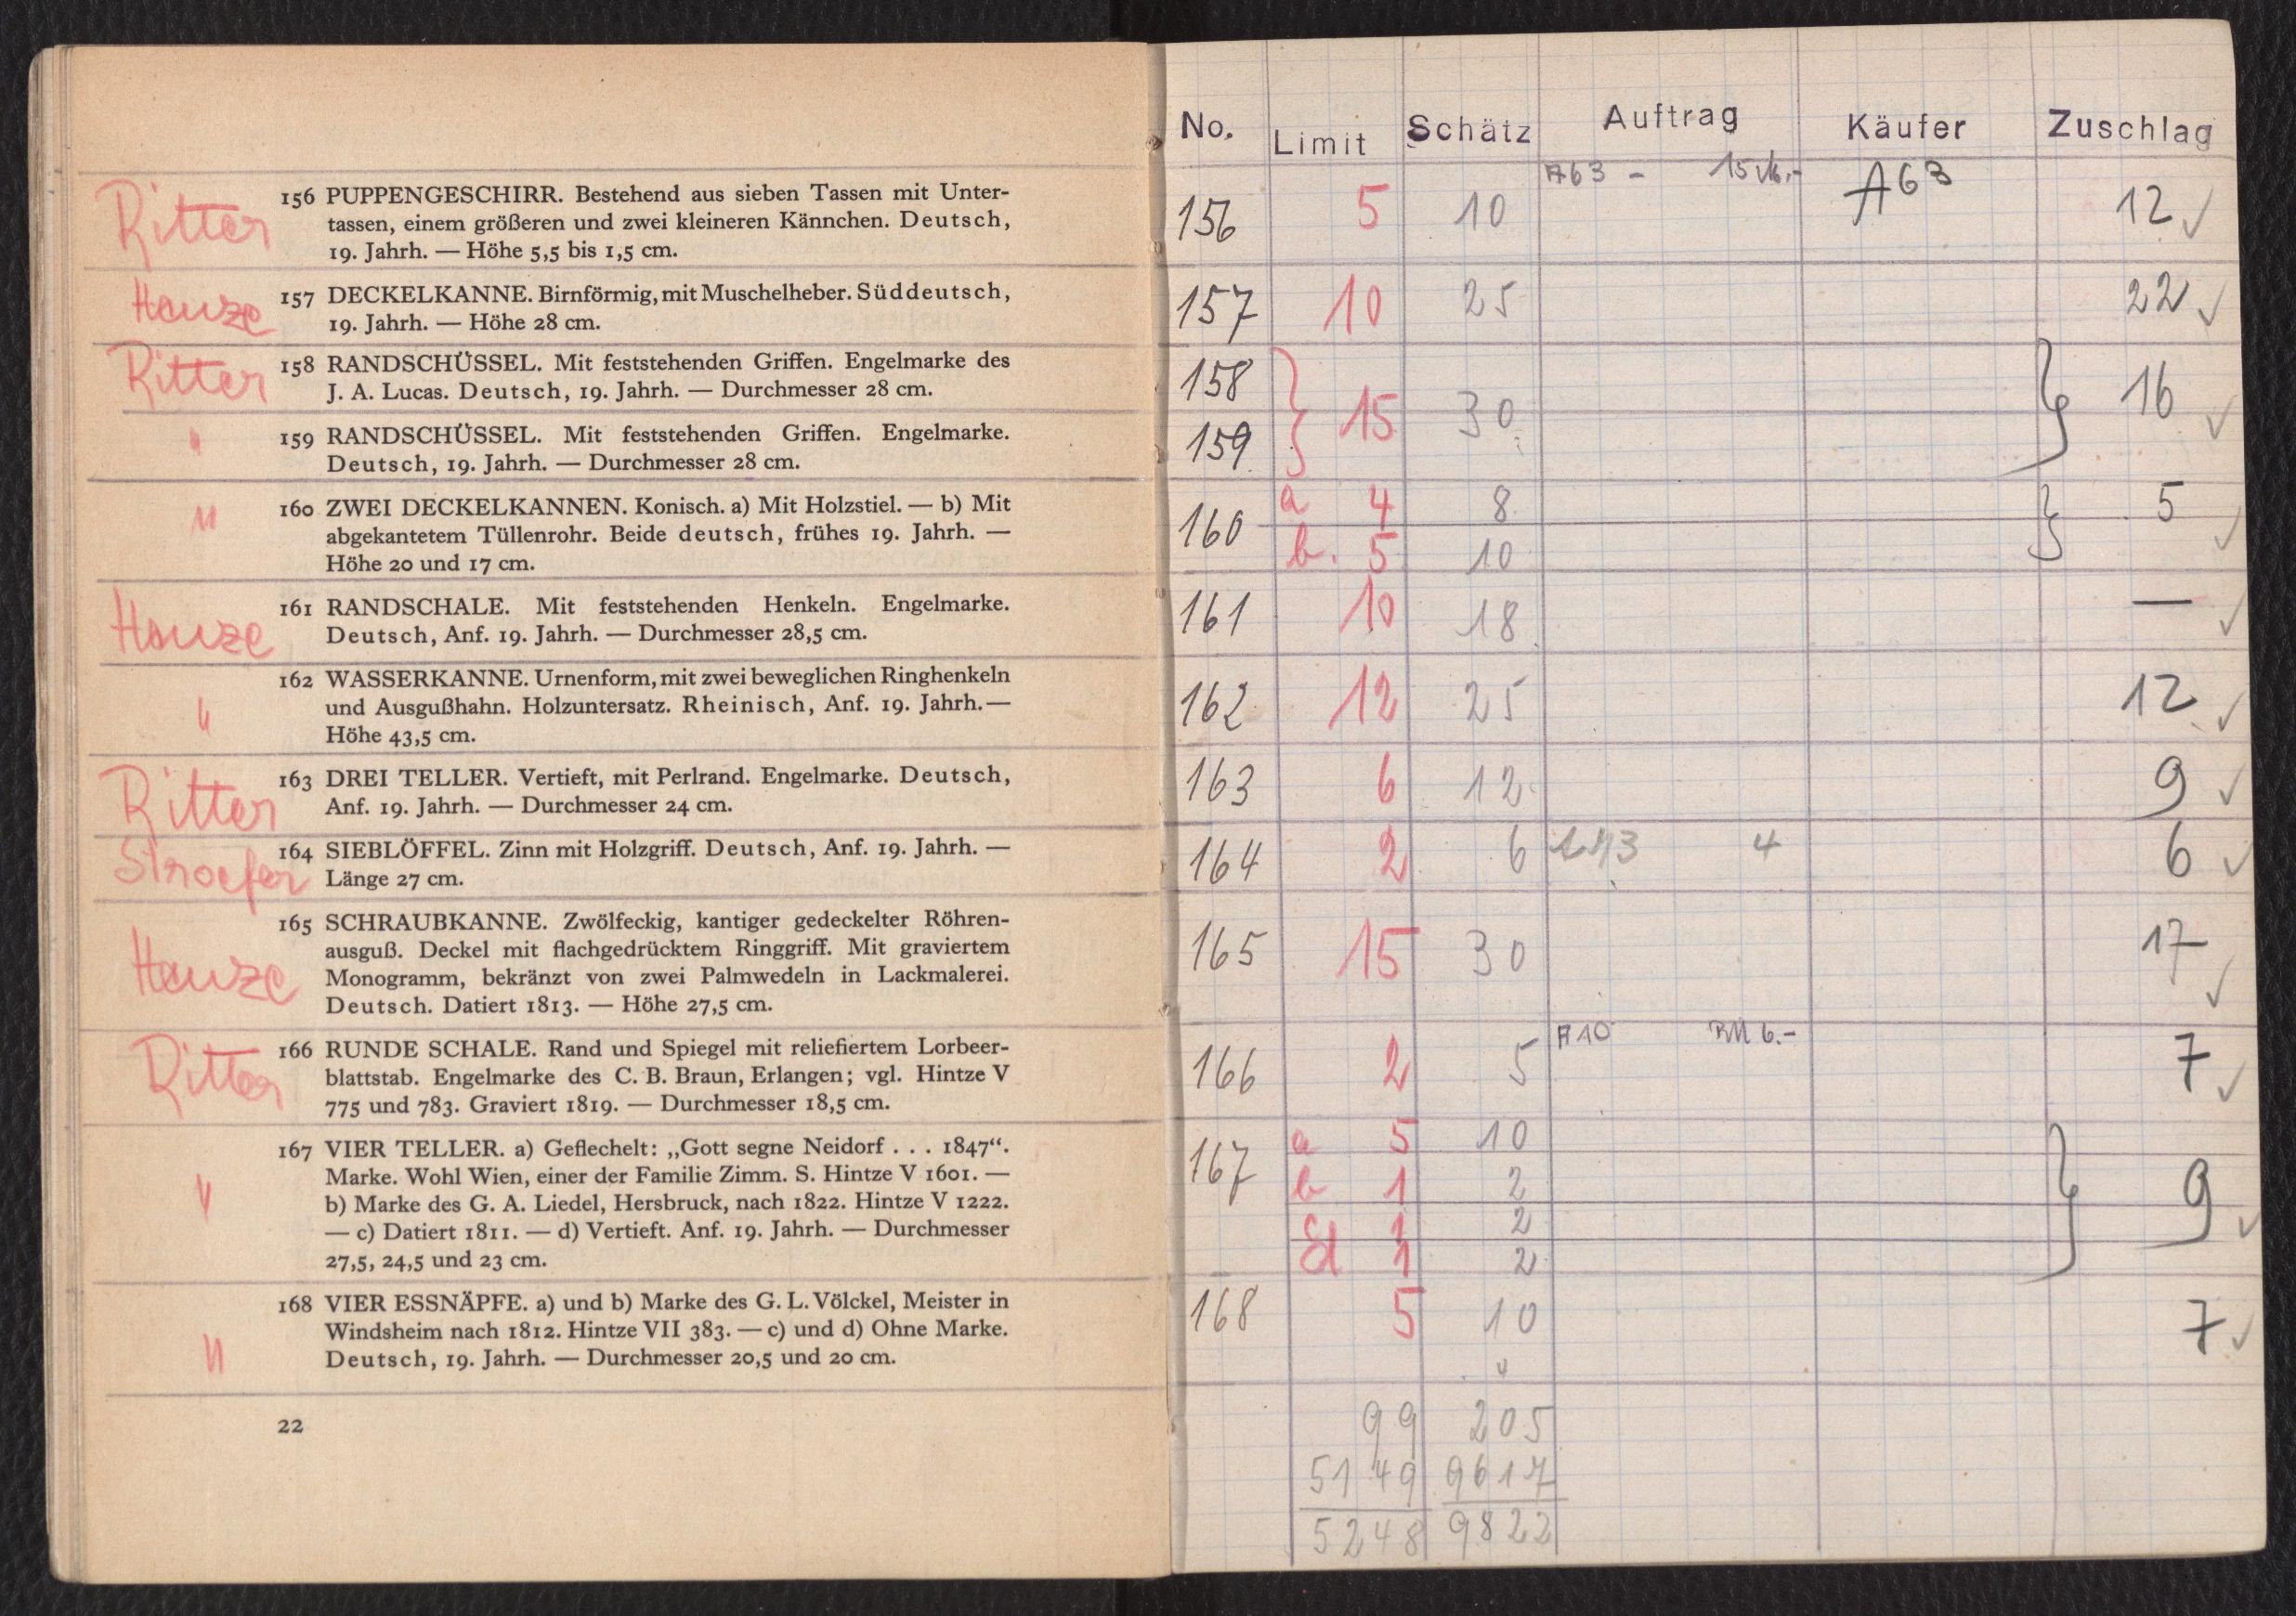 Ritter
156 PUPPENGESCHIRR. Bestehend aus sieben Tassen mit Unter-
tassen, einem größeren und zwei kleineren Kännchen. Deutsch,
19. Jahrh. — Höhe 5,5 bis 1,5 cm.
157 DECKELKANNE. Birnförmig, mit Muschelheber. Süddeutsch,
19. Jahrh. — Höhe 28 cm.
Ritter
158 RANDSCHÜSSEL. Mit feststehenden Griffen. Engelmarke des
J. A. Lucas. Deutsch, 19. Jahrh. — Durchmesser 28 cm.
" 159 RANDSCHÜSSEL. Mit feststehenden Griffen. Engelmarke.
Deutsch, 19. Jahrh. — Durchmesser 28 cm.
" 160 ZWEI DECKELKANNEN. Konisch. a) Mit Holzstiel. — b) Mit
abgekantetem Tüllenrohr. Beide deutsch, frühes 19. Jahrh. —
Höhe 20 und 17 cm.
161 RANDSCHALE. Mit feststehenden Henkeln. Engelmarke.
Deutsch, Anf. 19. Jahrh. — Durchmesser 28,5 cm.
" 162 WASSERKANNE. Urnenform, mit zwei beweglichen Ringhenkeln
und Ausgußhahn. Holzuntersatz. Rheinisch, Anf. 19. Jahrh. —
Höhe 43,5 cm.
Ritter
163 DREI TELLER. Vertieft, mit Perlrand. Engelmarke. Deutsch,
Anf. 19. Jahrh. — Durchmesser 24 cm.
Stroefer
164 SIEBLÖFFEL. Zinn mit Holzgriff. Deutsch, Anf. 19. Jahrh. —
Länge 27 cm.
165 SCHRAUBKANNE. Zwölfeckig, kantiger gedeckelter Röhren-
ausguß. Deckel mit flachgedrücktem Ringgriff. Mit graviertem
Monogramm, bekränzt von zwei Palmwedeln in Lackmalerei.
Deutsch. Datiert 1813. — Höhe 27,5 cm.
Ritter
166 RUNDE SCHALE. Rand und Spiegel mit reliefiertem Lorbeer-
blattstab. Engelmarke des C. B. Braun, Erlangen; vgl. Hintze V
775 und 783. Graviert 1819. — Durchmesser 18,5 cm.
" 167 VIER TELLER. a) Geflechelt: „Gott segne Neidorf . . . 1847“.
Marke. Wohl Wien, einer der Familie Zimm. S. Hintze V 1601. —
b) Marke des G. A. Liedel, Hersbruck, nach 1822. Hintze V 1222.
— c) Datiert 1811. — d) Vertieft. Anf. 19. Jahrh. — Durchmesser
27,5, 24,5 und 23 cm.
" 168 VIER ESSNÄPFE. a) und b) Marke des G. L. Völckel, Meister in
Windsheim nach 1812. Hintze VII 383. — c) und d) Ohne Marke.
Deutsch, 19. Jahrh. — Durchmesser 20,5 und 20 cm.
22
No. Limit Schätz Auftrag Käufer Zuschlag
A63 – 15
156 5 10 A63 12 ✓
157 10 25 22 ✓
158
15 30 16 ✓
159
160 a 4 8 5 ✓
b. 5 10
161 10 18 — ✓
162 12 25 12 ✓
163 6 12 9 ✓
164 2 6 4 6 ✓
165 15 30 17 ✓
A10 RM 6.–
166 2 5 7 ✓
167 a 5 10
b 1 2 9 ✓
c 1 2
d 1 2
168 5 10 7 ✓
99 205
5149 9617
5248 9822